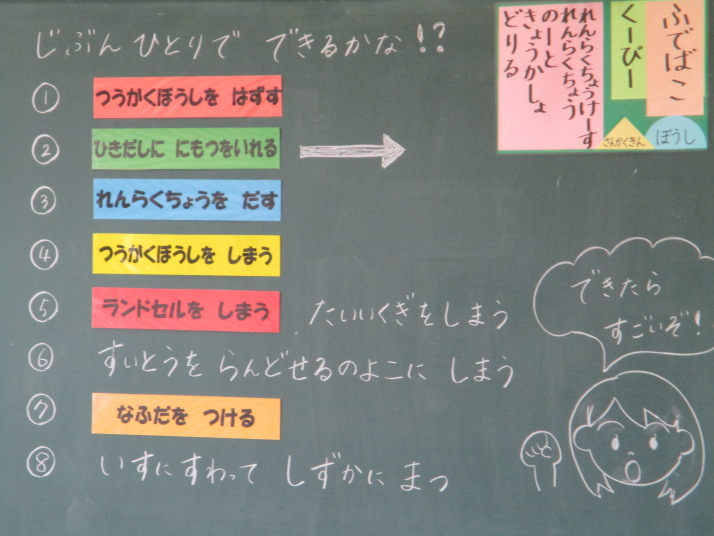 じぶんひとりで できるかな!?
① つうがくぼうしを はずす
② ひきだしに にもつをいれる
③ れんらくちょうを だす
④ つうがくぼうしを しまう
⑤ ランドセルを しまう たいいくぎをしまう
⑥ すいとうを らんどせるのよこに しまう
⑦ なふだを つける
⑧ いすにすわって しずかに まつ
ふでばこ
くーぴー
れんらくちょうけーす
れんらくちょう
のーと
きょうかしょ
どりる
さんかくきん
ぼうし
できたら
すごいぞ!